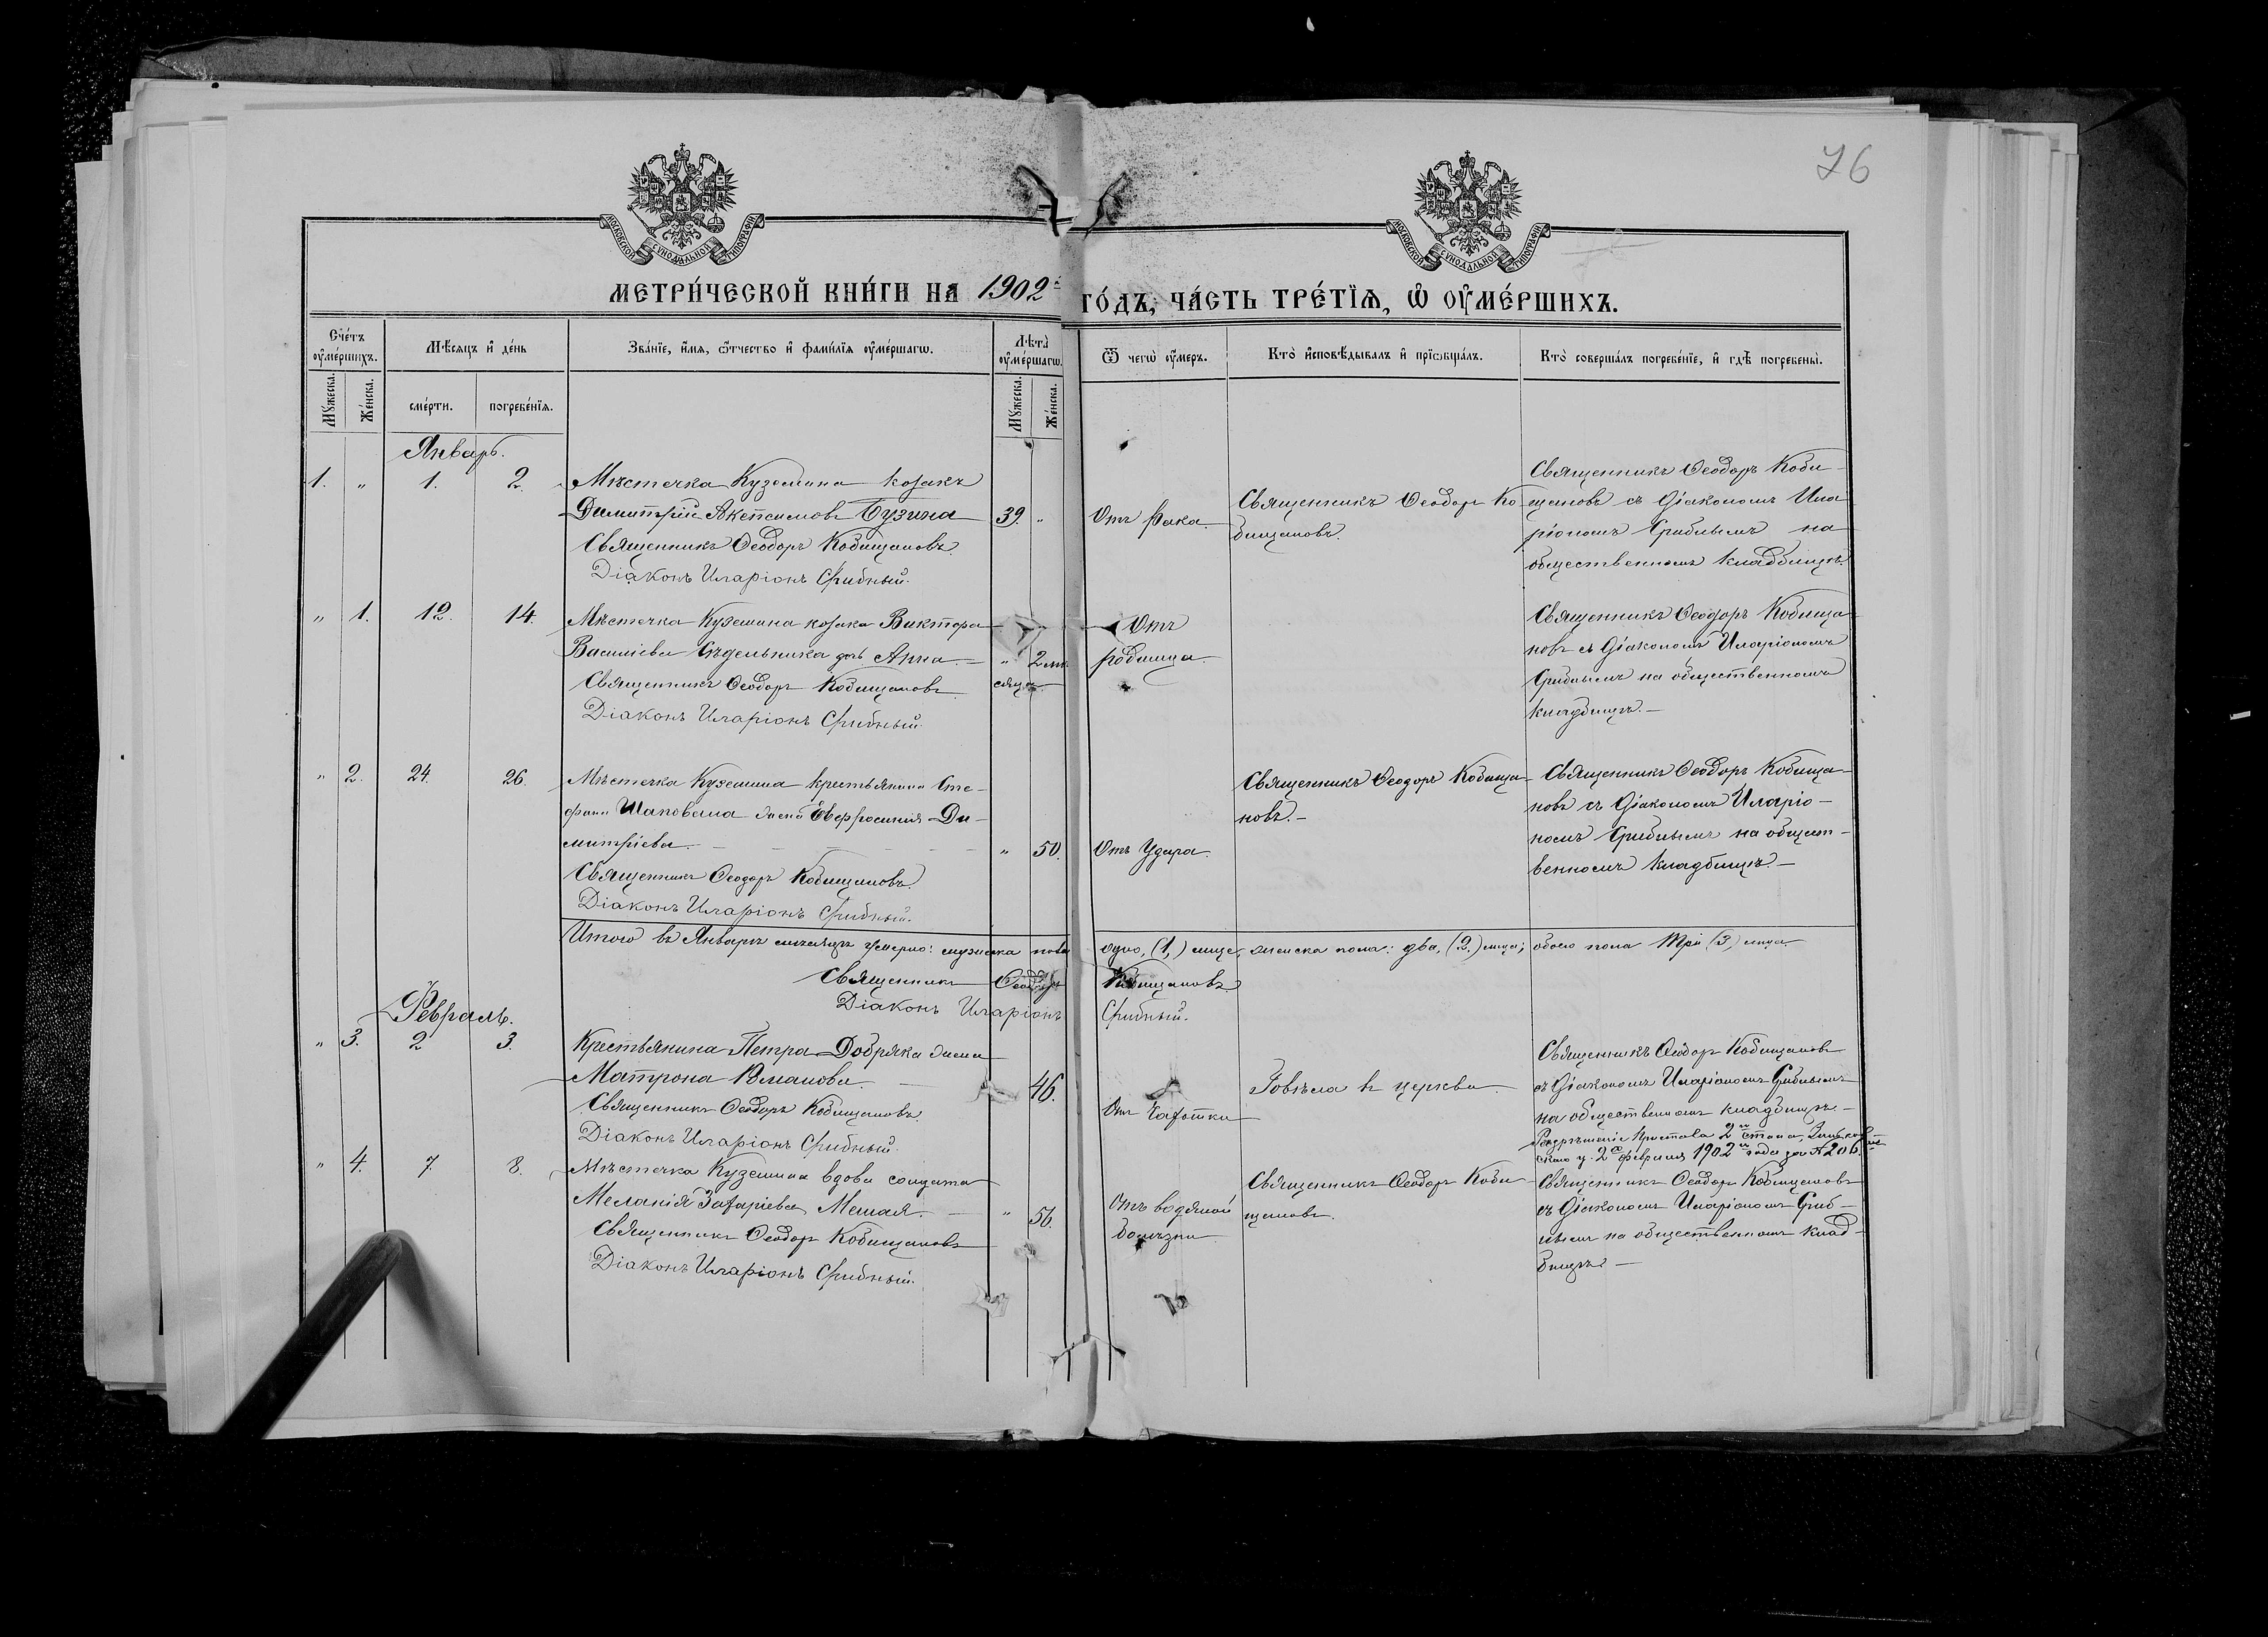 76
МОСКОВСКОЙ СѴНОДАЛЬНОЙ ТИПОГРАФІИ
МОСКОВСКОЙ СѴНОДАЛЬНОЙ ТИПОГРАФІИ
МЕТРИ́ЧЕСКОЙ КНИ́ГИ НА 1902й ГО́ДЪ, ЧА́СТЬ ТРЕ́ТЇѦ, Ѡ҆ ОУ҆МЕ́РШИХЪ.
Сче́тъ оу҆ме́ршихъ.
Мꙋ́жеска.
Же́нска.
Мѣ́сяцъ и҆ де́нь
сме́рти.
погребе́нїѧ.
Зва́нїе, и҆́мѧ, ѻ҆́тчество и҆ фамı́лїѧ оу҆ме́ршагѡ.
Лѣ̀та оу҆ме́ршагѡ.
Мꙋ́жеска.
Же́нска.
Ѿ чегѡ̀ оу҆́меръ.
Кто̀ и҆сповѣ́дывалъ и҆ прїѡбща́лъ.
Кто̀ соверша́лъ погребе́нїе, и҆ гдѣ̀ погребены̀.
Январь.
1. " 1. 2.
Мѣстечка Куземина козакъ
Димитрій Акепсимовъ Бузина
39. "
Священникъ Ѳеодоръ Кобищановъ.
Діаконъ Иларіонъ Срибный.
Отъ Рака.
Священникъ Ѳеодоръ Ко-
бищановъ.
Священникъ Ѳеодоръ Коби-
щановъ съ Діакономъ Ила
ріономъ Срибнымъ на
общественномъ кладбищѣ.
" 1. 12. 14.
Мѣстечка Куземина козака Виктора
Василіева Сѣдельника дочь Анна. —
" 2 мѣ
сяца.
Священникъ Ѳеодоръ Кобищановъ
Діаконъ Иларіонъ Срибный.
Отъ
родимца.
Священникъ Ѳеодоръ Кобища
новъ съ Діакономъ Иларіономъ
Срибнымъ на общественномъ
кладбищѣ. —
" 2. 24. 26.
Мѣстечка Куземина крестьянина Сте-
фана Шаповала жена Евфросинія Ди-
митріева. —
" 50.
Священникъ Ѳеодоръ Кобищановъ.
Діаконъ Иларіонъ Срибный.
Отъ Удара.
Священникъ Ѳеодоръ Кобища-
новъ. —
Священникъ Ѳеодоръ Кобища-
новъ съ Діакономъ Иларіо-
номъ Срибнымъ на общест-
венномъ кладбищѣ. —
Итого въ Январѣ мѣсяцѣ умерло: мужеска пола одно, (1,) лице, женска пола: два, (2.) лица; обоего пола три (3,) лица.
Священникъ Ѳеодоръ Кобищановъ
Діаконъ Иларіонъ Срибный.
Февраль.
" 3. 2 3.
Крестьянина Петра Добряка жена
Матрона Романова. —
46.
Священникъ Ѳеодоръ Кобищановъ
Діаконъ Иларіонъ Срибный.
Отъ Чахотки
Говѣла въ церкви
Священникъ Ѳеодоръ Кобищановъ
съ Діакономъ Иларіономъ Срибнымъ
на общественномъ кладбищѣ. —
Разрѣшеніе Пристава 2го стана, Зиньков-
скаго у. 2го февраля 1902го года за № 206.
" 4. 7. 8.
Мѣстечка Куземина вдова солдата
Меланія Захаріева Малая. —
" 56.
Священникъ Ѳеодоръ Кобищановъ
Діаконъ Иларіонъ Срибный.
Отъ водяной
болѣзни
Священникъ Ѳеодоръ Коби-
щановъ.
Священникъ Ѳеодоръ Кобищановъ
съ Діакономъ Иларіономъ Сриб-
нымъ на общественномъ клад-
бищѣ. —